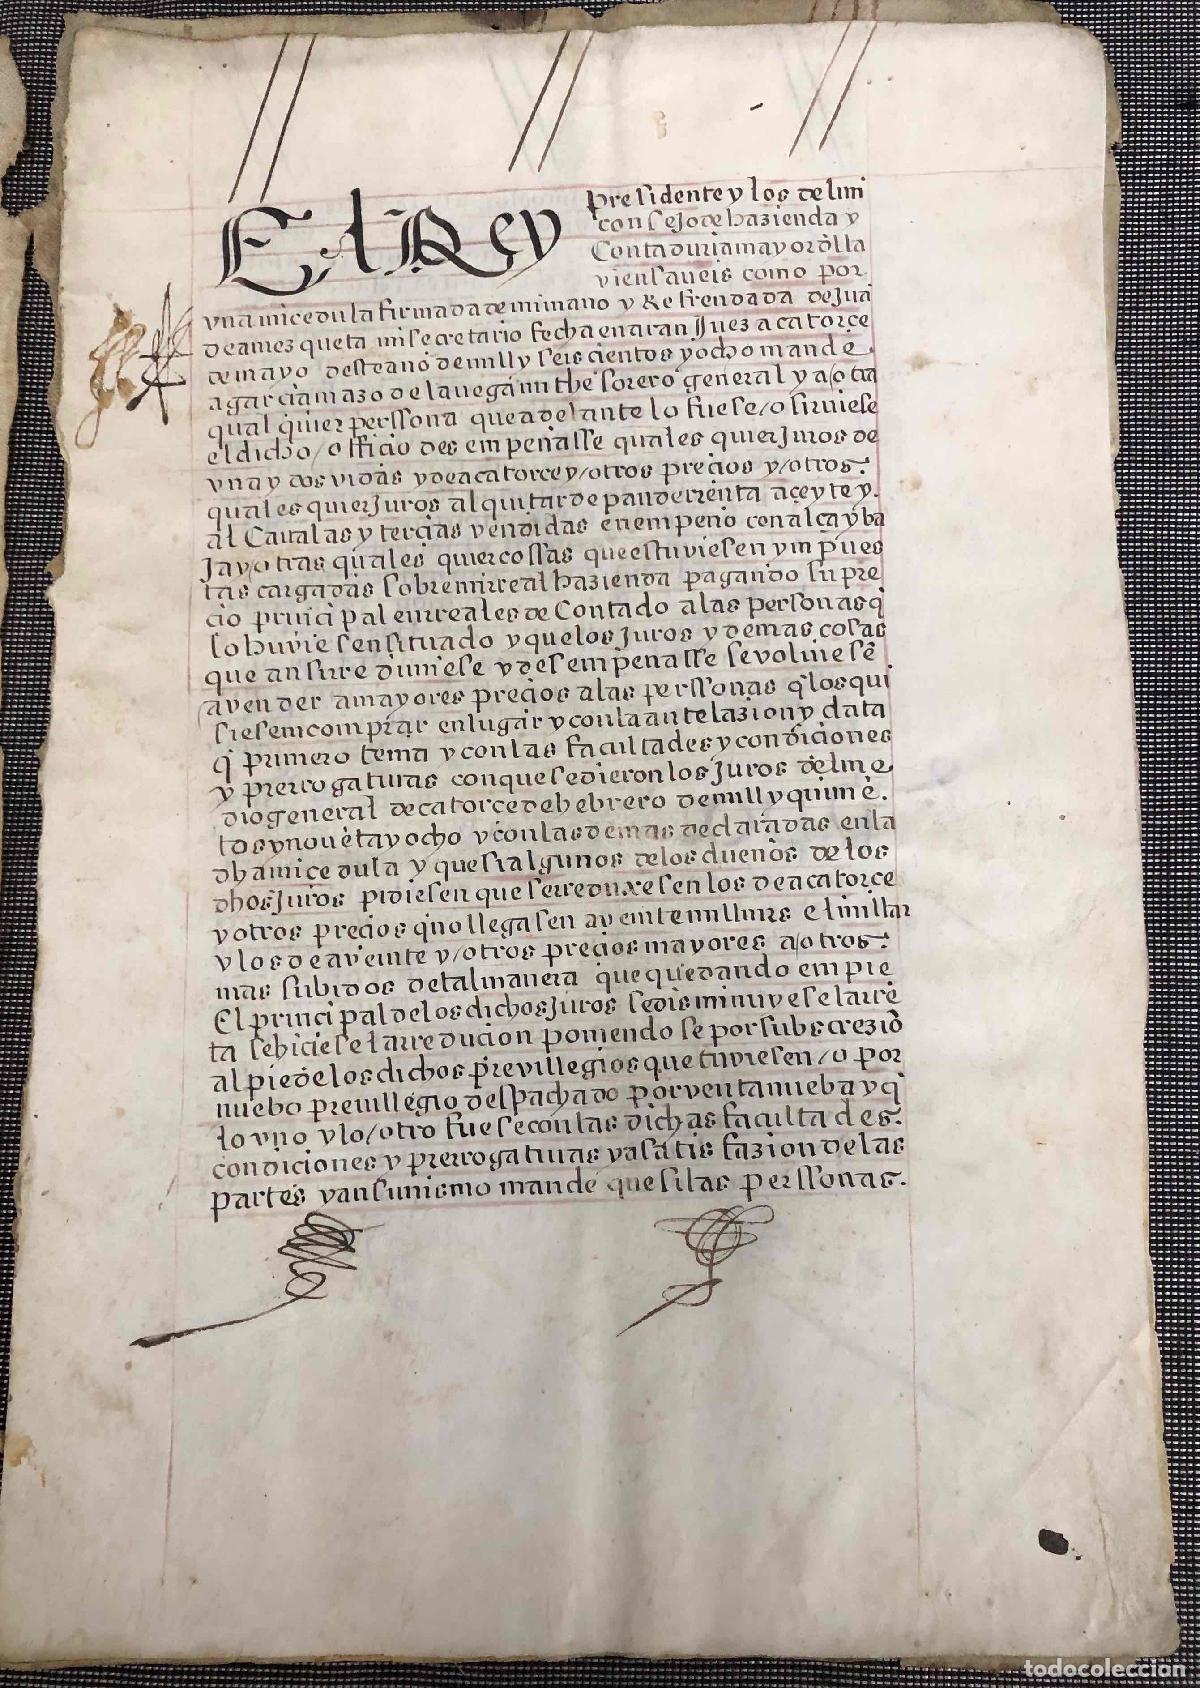 El Rey
Presidente y los del mi
consejo de hazienda y
Contaduria mayor dlla
vien saveis como por
una mi cedula firmada de mi mano y Refrendada de Jua
de amezqueta mi secretario fecha en aranJuez a catorçe
de mayo deste año de mill y seiscientos y ocho mande
a garcia mazo de la vega mi thesorero general y a /otra
qual quier perssona que adelante lo fuese /o sirviese
el dicho /officio desempeñasse quales quier Juros de
una y dos vidas y de a catorce y /otros preçios y /otros
quales quier Juros al quitar de pan de rrenta açeyte y
al Cavalas y terçias vendidas en empeño con alça y ba
Ja y /otras quales quier cossas que estuviesen ympues
tas cargadas sobre mi rreal hazienda pagando su pre
cio prinçipal en rreales de Contado a las personas q
lo huviesen situado y que los Juros y demas cosas
que ansi rredimiese y desempenasse se volviesē
a vender a mayores preçios a las perssonas q los qui
siesem comprar en lugar y con la antelazion y data
q primero tenia y con las facultades y condiciones
y prerrogativas con que se dieron los Juros del me
dio general de catorce de hebrero de mill y quiniē
tos y novēta y ocho y con las demas declaradas en la
dha mi cedula y que si algunos de los dueños de los
dhos Juros pidiesen que se rreduxesen los de a catorçe
y otros preçios q no llegasen a veinte mill mrs el millar
y los de a veinte y /otros preçios mayores a /otros
mas subidos de tal manera que quedando em pie
El prinçipal de los dichos Juros se disminuyese la rrē
ta se hiciese la rreducion poniendose por subscreziō
al pie de los dichos previllegios que tuviesen /o por
nuebo previllegio despachado por venta nueba y q
lo uno y lo /otro fuese con las dichas facultades
condiciones y prerrogativas y a satisfazion de las
partes y ansimismo mande que si las perssonas.
todocoleccion